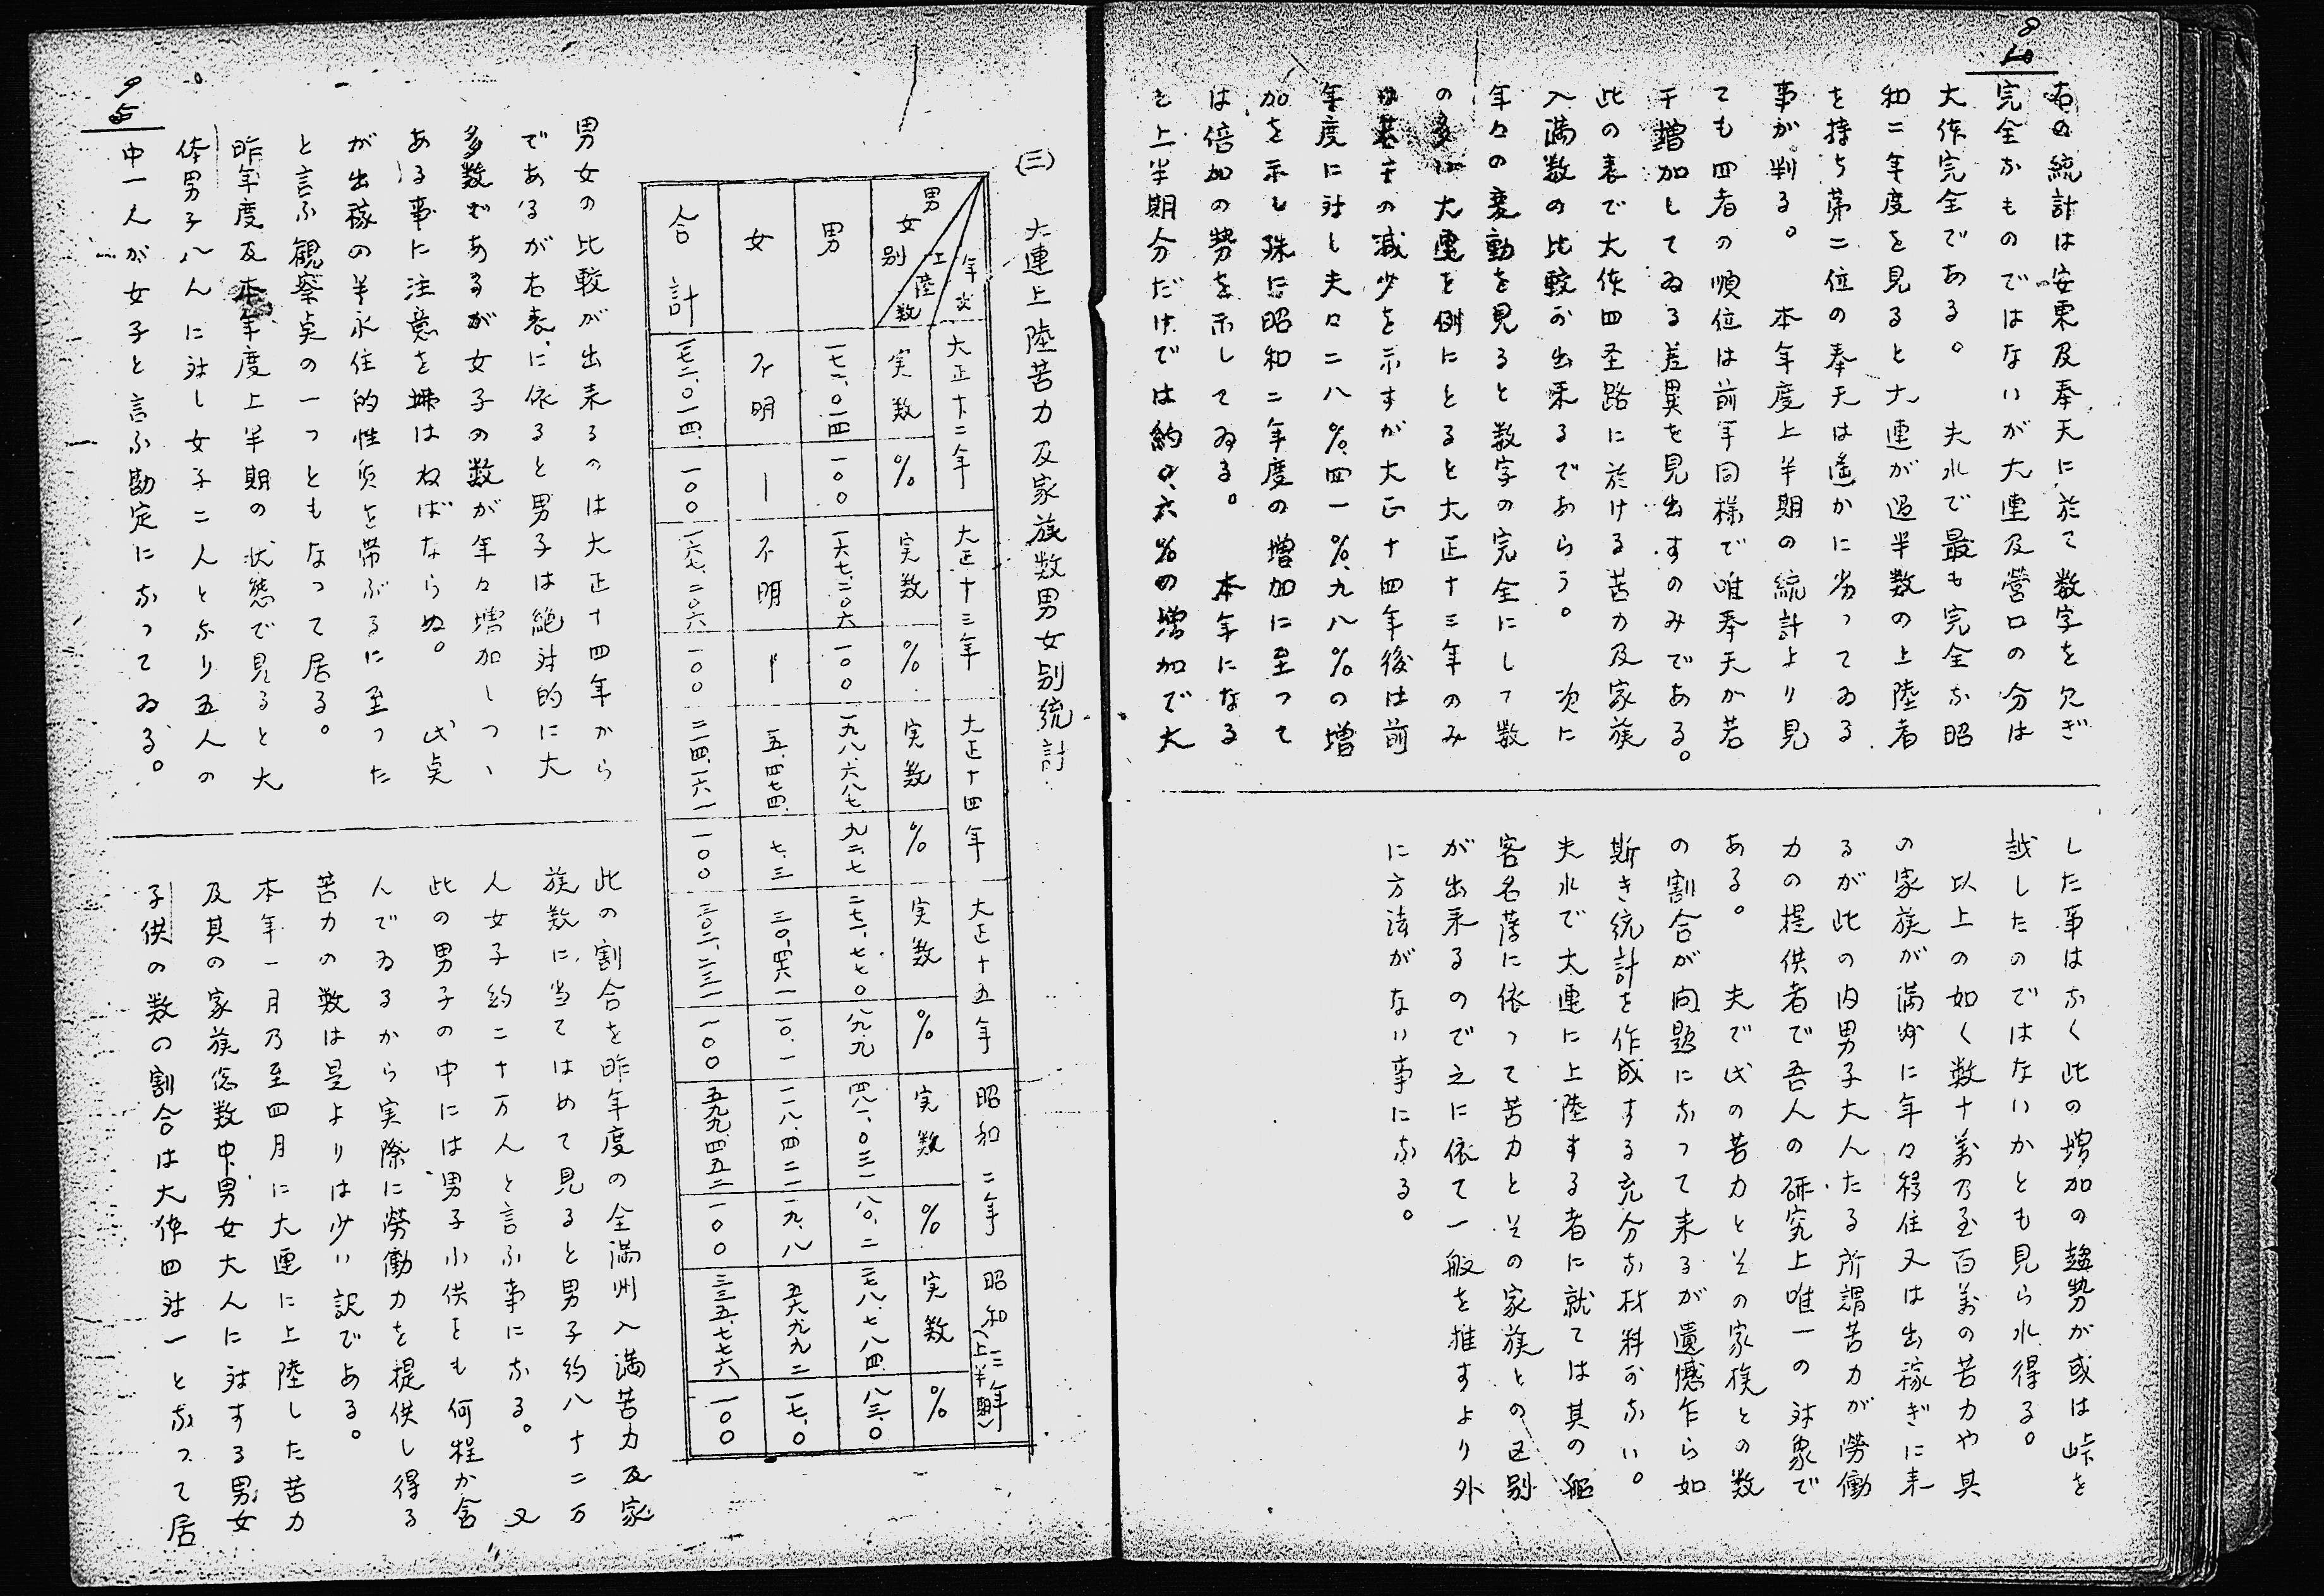 8
右の統計は安東及奉天に於て数字を欠ぎ
完全なものではないが大連及営口の分は
大体完全である。 夫れで最も完全な昭
和二年度を見ると大連が過半数の上陸者
を持ち第二位の奉天は遙かに劣つてゐる
事が判る。 本年度上半期の統計より見
ても四者の順位は前年同様で唯奉天が若
干増加してゐる差異を見出すのみである。
此の表で大体四圣路に於ける苦力及家族
入満数の比較が出来るであらう。 次に
年々の変動を見ると数字の完全にして数
の多い大連を例にとると大正十三年のみ
は若干の減少を示すが大正十四年後は前
年度に対し夫々二八%、四一%、九八%の増
加を示し殊に昭和二年度の増加に至つて
は倍加の勢を示してゐる。 本年になる
と上半期分だけでは約〇、六%の増加で大
した事はなく此の増加の趨勢が或は峠を
越したのではないかとも見られ得る。
以上の如く数十萬乃至百萬の苦力や其
の家族が満州に年々移住又は出稼ぎに来
るが此の内男子大人たる所謂苦力が労働
力の提供者で吾人の研究上唯一の対象で
ある。 夫で此の苦力とその家族との数
の割合が問題になつて来るが遺憾乍ら如
斯き統計を作成する充分な材料がない。
夫れで大連に上陸する者に就ては其の船
客名簿に依つて苦力とその家族との区別
が出来るので之に依て一般を推すより外
に方法がない事になる。
(三) 大連上陸苦力及家族数男女別統計
年次 上陸数 男女別 大正十二年 大正十三年 大正十四年 大正十五年 昭和二年 昭和三年(上半期)
実数 % 実数 % 実数 % 実数 % 実数 % 実数 %
男 一七二、〇一四 一〇〇 一六七、二〇六 一〇〇 一九八、六八七 九二、七 二七一、七七〇 八九、九 四八一、〇三一 八〇、二 二七八、七八四 八三、〇
女 不明 ー 不明 ー 一五、四七四 七、三 三〇、四六一 一〇、一 一一八、四二一 一九、八 五六、九九二 一七、〇
合計 一七二、〇一四 一〇〇 一六七、二〇六 一〇〇 二一四、一六一 一〇〇 三〇二、二三一 一〇〇 五九九、四五二 一〇〇 三三五、七七六 一〇〇
男女の比較が出来るのは大正十四年から
であるが右表に依ると男子は絶対的に大
多数であるが女子の数が年々増加しつゝ
ある事に注意を拂はねばならぬ。 此点
が出稼の半永住的性質を帯ぶるに至つた
と言ふ観察点の一つともなつて居る。
昨年度及本年度上半期の状態で見ると大
体男子八人に対し女子二人となり五人の
中一人が女子と言ふ勘定になつてゐる。
此の割合を昨年度の全満州入満苦力及家
族数に当てはめて見ると男子約八十二万
人女子約二十万人と言ふ事になる。 又
此の男子の中には男子小供をも何程か含
んでゐるから実際に労働力を提供し得る
苦力の数は是よりは少い訳である。
本年一月乃至四月に大連に上陸した苦力
及其の家族总数中男女大人に対する男女
子供の数の割合は大体四対一となつて居
9